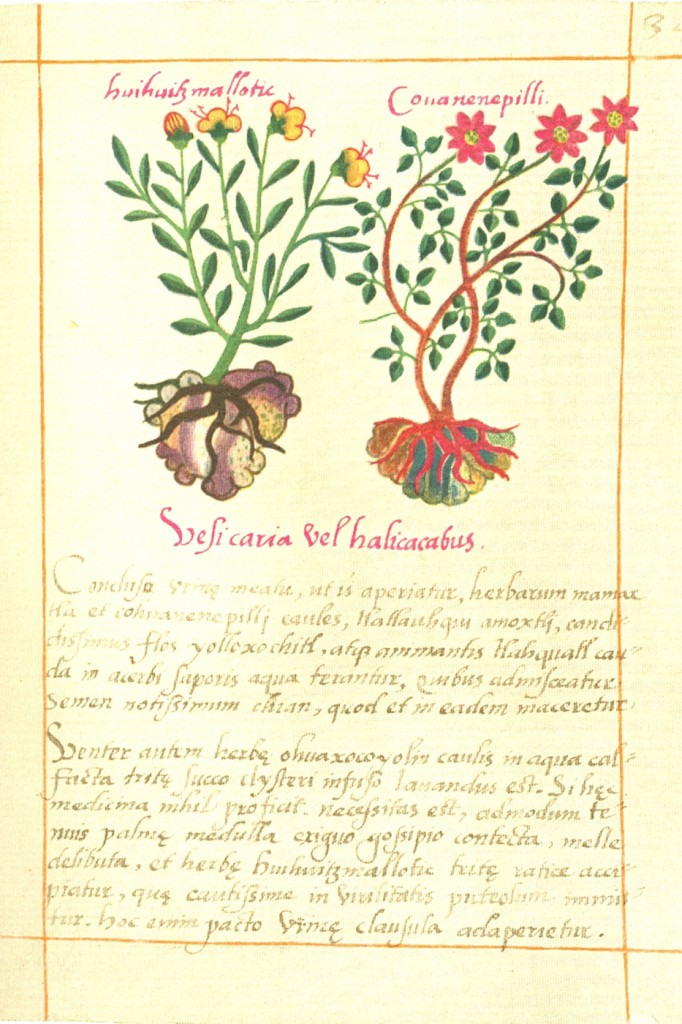 34
huihuitzmallotic
Couanenepilli.
Vesicaria vel halicacabus.
Concluso vrinę meatu, ut is aperiatur, herbarum mamax
tla et cohuanenepilli caules, tlatlauhqui amoxtli, candi-
dissimus flos yolloxochitl, atqȝ ammantis tlahquatl cau-
da in acerbi saporis aqua terantur, quibus admisceatur
semen notissimum chian, quod et in eadem maceretur.
Venter autem herbę ohuaxocoyolin caulis in aqua cal-
facta tritę succo clysteri infuso lauandus est. Si hęc
medicina nihil proficit. necessitas est, admodum te-
nuis palmę medulla exiguo gossipio contecta, melle
delibuta, et herbę huihuitzmallotic tritę radice acci-
piatur, quę cautissime in virilitatis puteolum immit-
tur. hoc enim pacto vrinę clausula adaperietur.